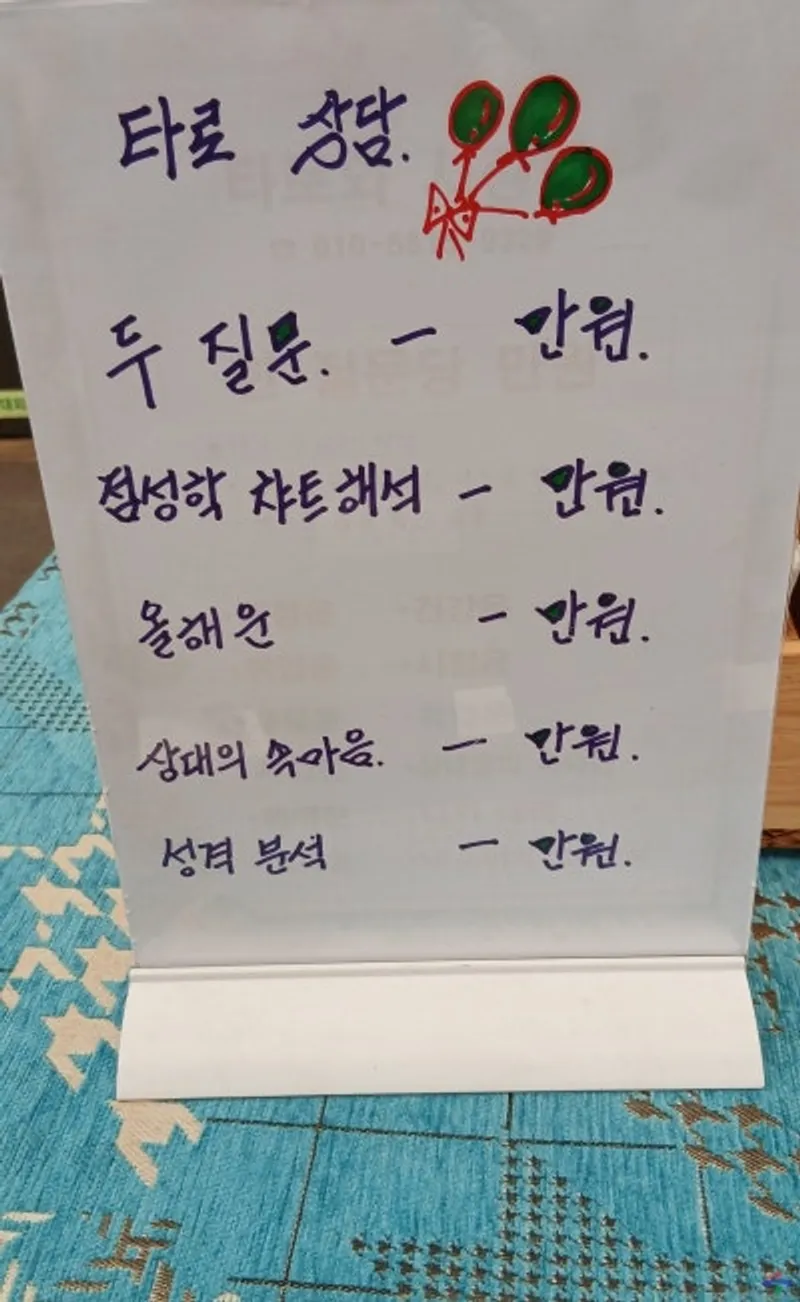 타로 상담.
두 질문. - 만원.
점성학 챠트해석 - 만원.
올해운 - 만원.
상대의 속마음. - 만원.
성격 분석 - 만원.